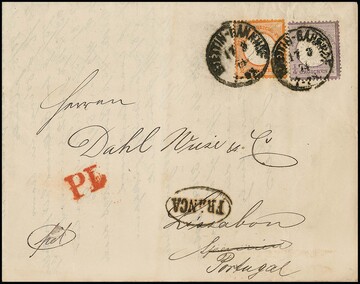 STETTIN-BAHNHOF
STETTIN-BAHNHOF
Herren
Dahl Wiese u. C.
PD
FRANCA
Lissabon
Spanien
Portugal